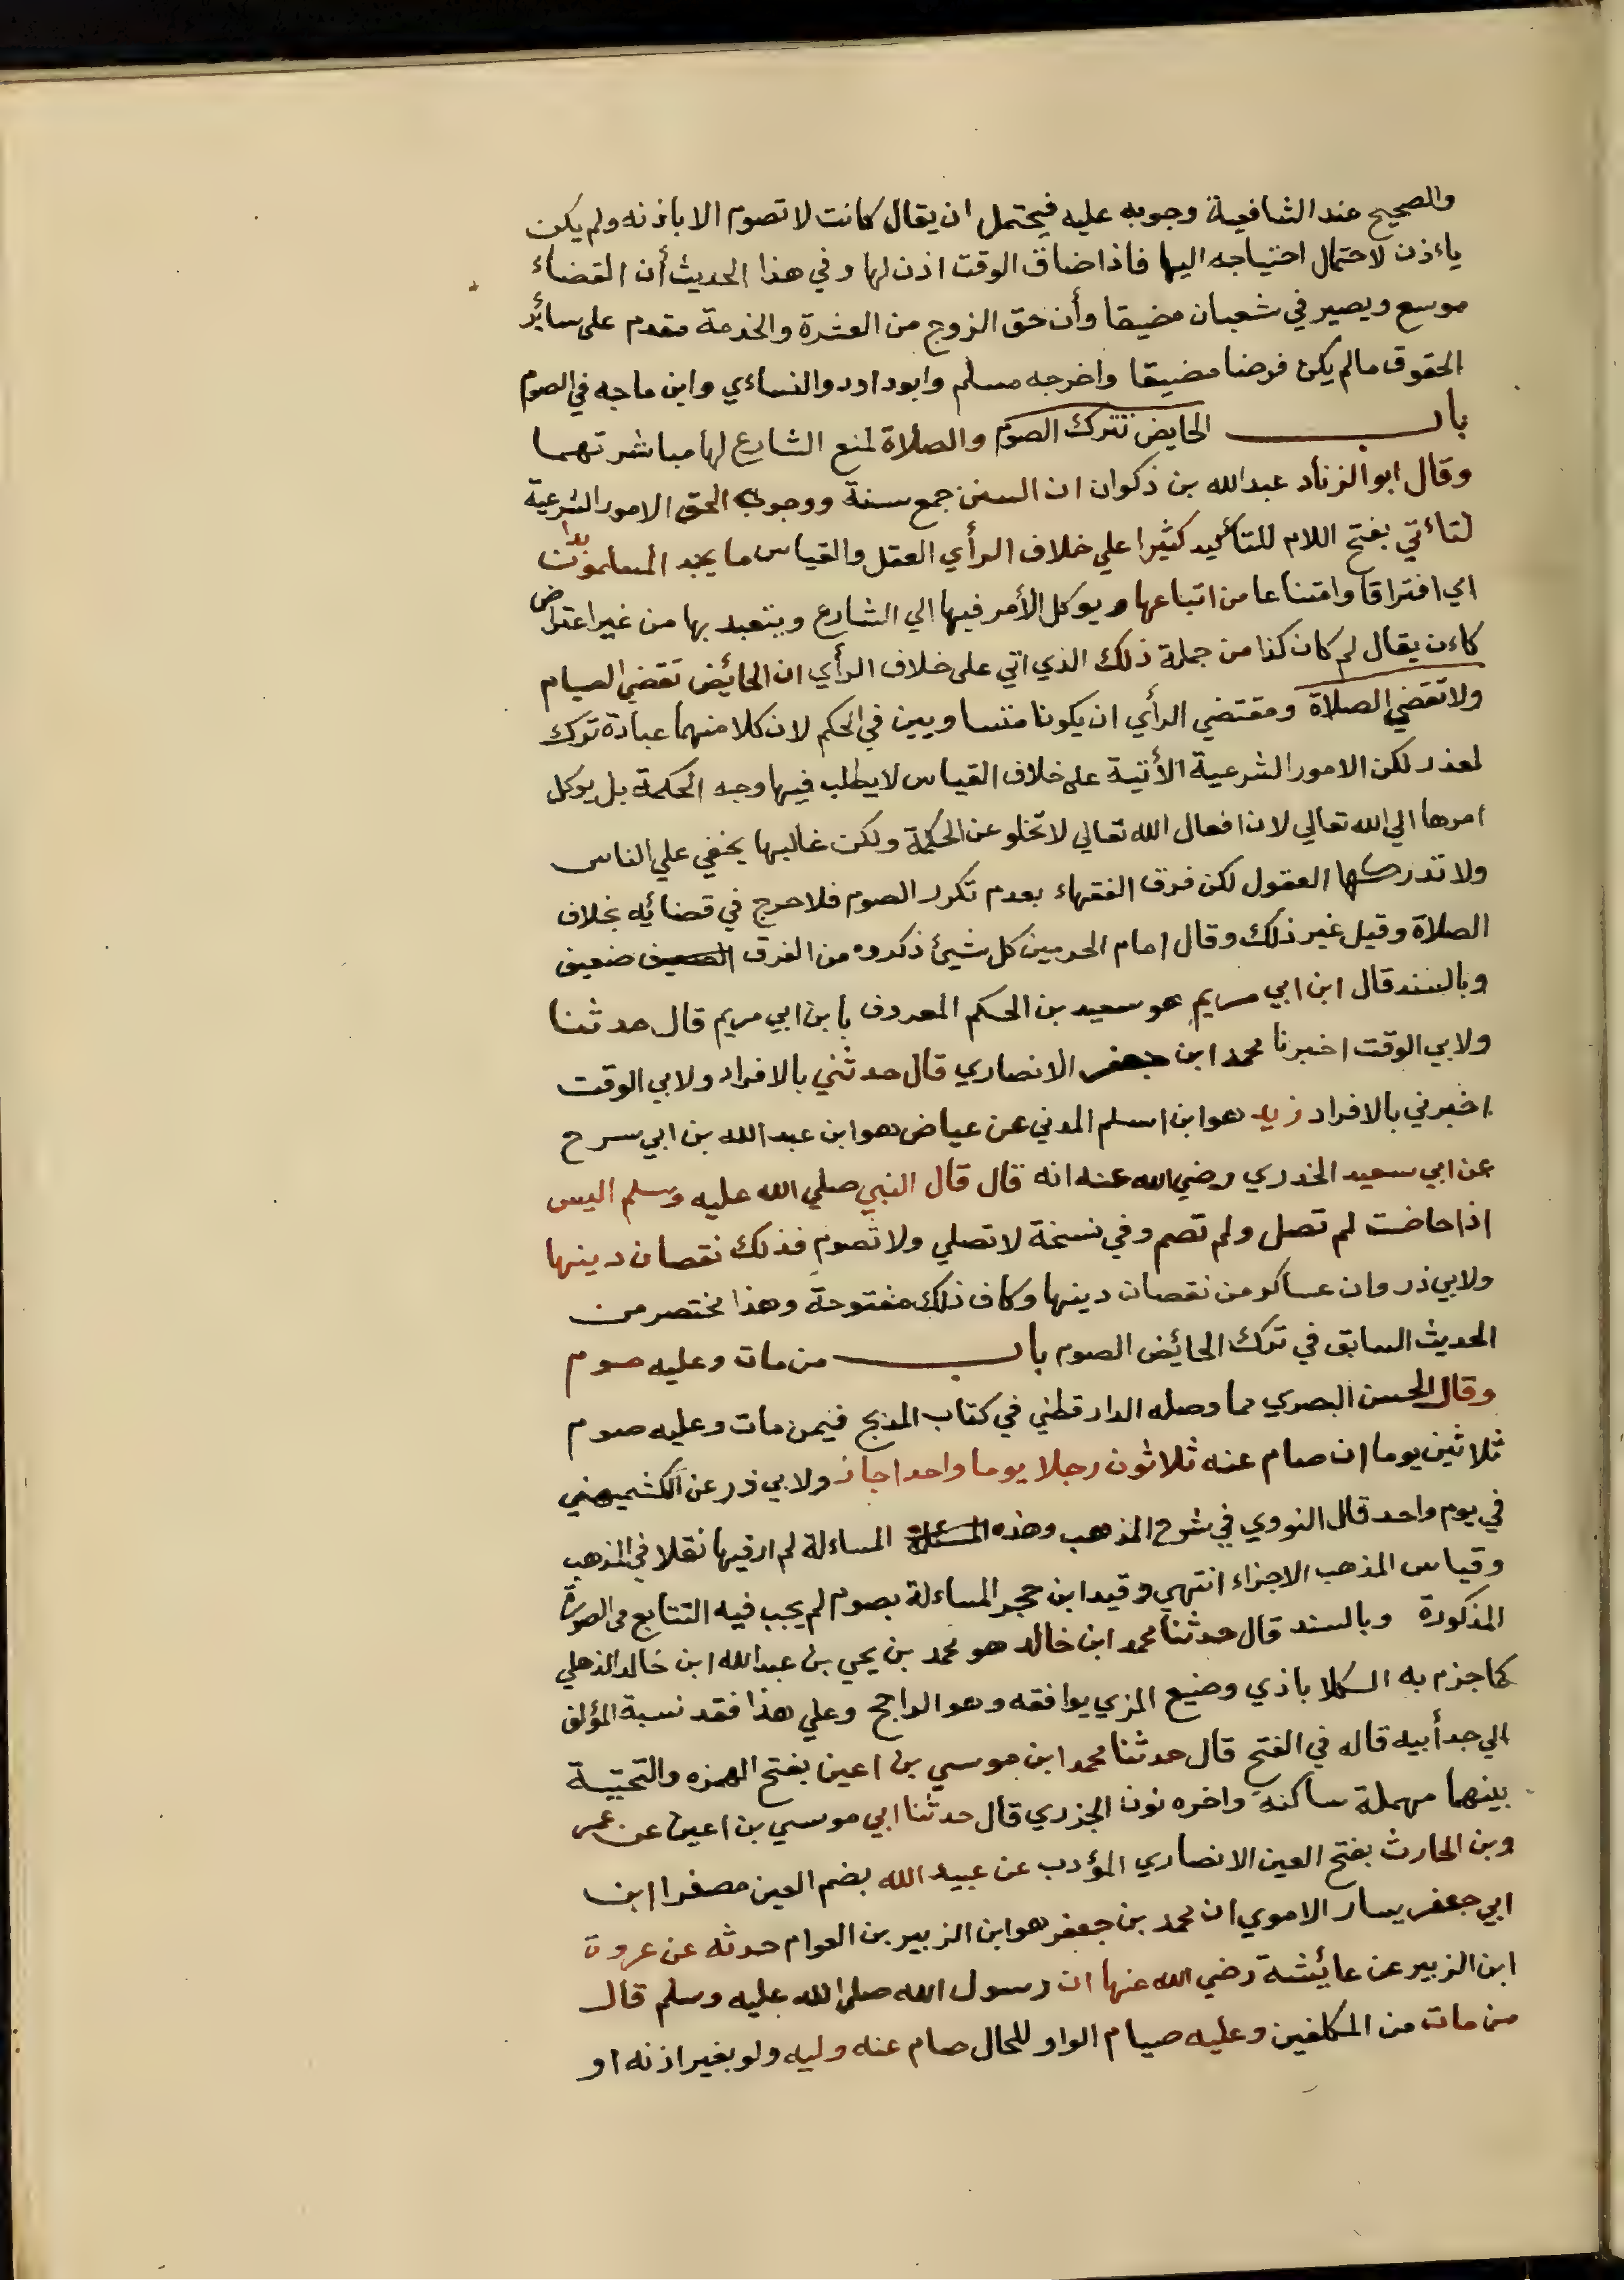 والصحيح عند الشافعية وجوبه عليه فيحتمل ان يقال كانت لا تصوم الا باذنه ولم يكن
ياءذن لاحتمال احتياجه اليها فاذا ضاق الوقت اذن لها وفي هذا الحديث أن القضاء
موسع ويصير في شعبان مضيقا وأن حق الزوج من العشرة والخدمة مقدم على سائر
الحقوق مالم يكن فرضا مضيقا واخرجه مسلم وابوداود والنساءي وابن ماجه في الصوم
باب الحايض تترك الصوم والصلاة لمنع الشارع لها مباشرتهما
وقال ابو الزناد عبدالله بن ذكوان ان السنن جمع سنة ووجوه الحق الامور الشرعية
لتاءتي بفتح اللام للتأكيد كثيرا علي خلاف الرأي العقل والقياس ما يجد المسلمون بدا
اي افتراقا وامتناعا من اتباعها ويوكل الأمر فيها الي الشارع ويتعبد بها من غير اعتراض
كاءن يقال لم كان كذا من جملة ذلك الذي اتي على خلاف الرأي ان الحائض تقضي الصيام
ولا تقضي الصلاة ومقتضي الرأي ان يكونا متساويين في الحكم لان كلا منهما عبادة تترك
لعذر لكن الامور الشرعية الأتية على خلاف القياس لا يطلب فيها وجه الحكمة بل يوكل
امرها الي الله تعالي لان افعال الله تعالي لا تخلو عن الحكمة ولكن غالبها يخفي علي الناس
ولا تدركها العقول لكن فرق الفقهاء بعدم تكرر الصوم فلا حرج في قضائه بخلاف
الصلاة وقيل غير ذلك وقال امام الحرمين كل شيئ ذكروه من الفرق ضعيف
وبالسند قال ابن ابي مريم هو سعيد بن الحكم المعروف بابن ابي مريم قال حدثنا
ولابي الوقت اخبرنا محمد ابن جعفر الانصاري قال حدثني بالافراد ولابي الوقت
اخبرني بالافراد زيد هو ابن اسلم المدني عن عياض هو ابن عبد الله بن ابي سرح
عن ابي سعيد الخدري رضي الله عنه انه قال قال النبي صلي الله عليه وسلم اليس
اذا حاضت لم تصل ولم تصم وفي نسخة لا تصلي ولا تصوم فذلك نقصان دينها
ولابي ذر وان عساكر من نقصان دينها وكاف ذلك مفتوحة وهذا مختصر من
الحديث السابق في ترك الحائض الصوم باب من مات وعليه صوم
وقال الحسن البصري مما وصله الدارقطني في كتاب المدبج فيمن مات وعليه صوم
ثلاثين يوما ان صام عنه ثلاثون رجلا يوما واحدا جاز ولابي ذر عن الكشميهني
في يوم واحد قال النووي في شرح المذهب وهذه المسئلة المساءلة لم ار فيها نقلا في المذهب
وقياس المذهب الاجزاء انتهي وقيد ابن حجر المساءلة بصوم لم يجب فيه التتابع في الصورة
المذكورة وبالسند قال حدثنا محمد ابن خالد هو محمد بن يحي بن عبد الله ابن خالد الذهلي
كما جزم به الكلاباذي وضيع المزي يوافقه وهو الراجح وعلي هذا فقد نسبة المؤلف
الي جد أبيه قاله في الفتح قال حدثنا محمد ابن موسي بن اعين بفتح الهمزه والتحتية
بينهما مهملة ساكنة واخره نون الجزري قال حدثنا ابي موسي بن اعين عن عمر
وبن الحارث بفتح العين الانصاري المؤدب عن عبيد الله بضم العين مصغرا ابن
ابي جعفر يسار الاموي ان محمد بن جعفر هو ابن الزبير بن العوام حدثه عن عروة
ابن الزبير عن عائشة رضي الله عنها ان رسول الله صلى الله عليه وسلم قال
من مات من المكلفين وعليه صيام الواو للحال صام عنه وليه ولو بغير اذنه او